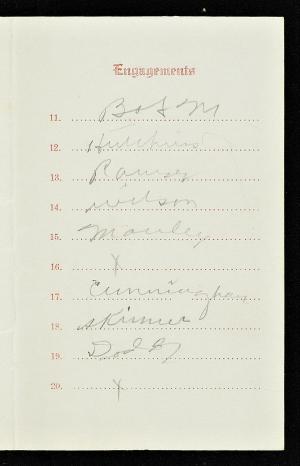 Engagements
11. B of M
12. Hutchins
13. Ramsey
14. Wilson
15. Manley
16. X
17. Cunningham
18. Skinner
19. Doddy
20. X